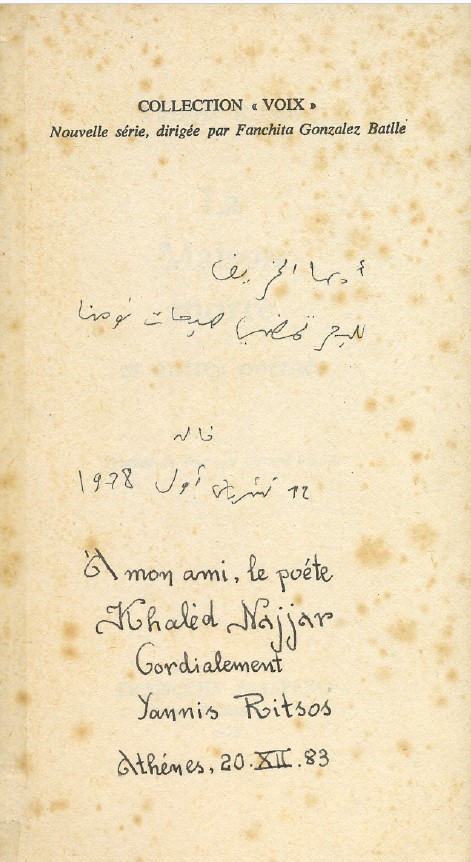 COLLECTION « VOIX »
Nouvelle série, dirigée par Fanchita Gonzalez Batlle
أيها الخريف
للبحر تمضي صيحات نومنا
خالد
12 تشرين أول 1978
À mon ami, le poéte
Khaléd Najjar
Cordialement
Yannis Ritsos
Athénes, 20.XII.83